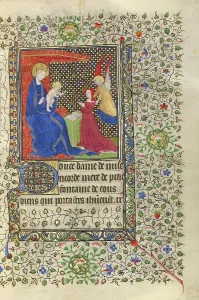 Douce dame de mise
ricorde mere de pitie
fontaine de tous
biens qui portastes ihucrist